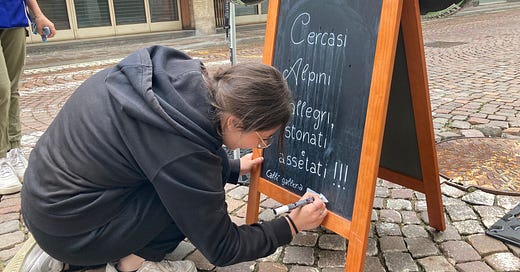 Cercasi
Alpini
allegri,
stonati
e
assetati !!!
Caffè galleria